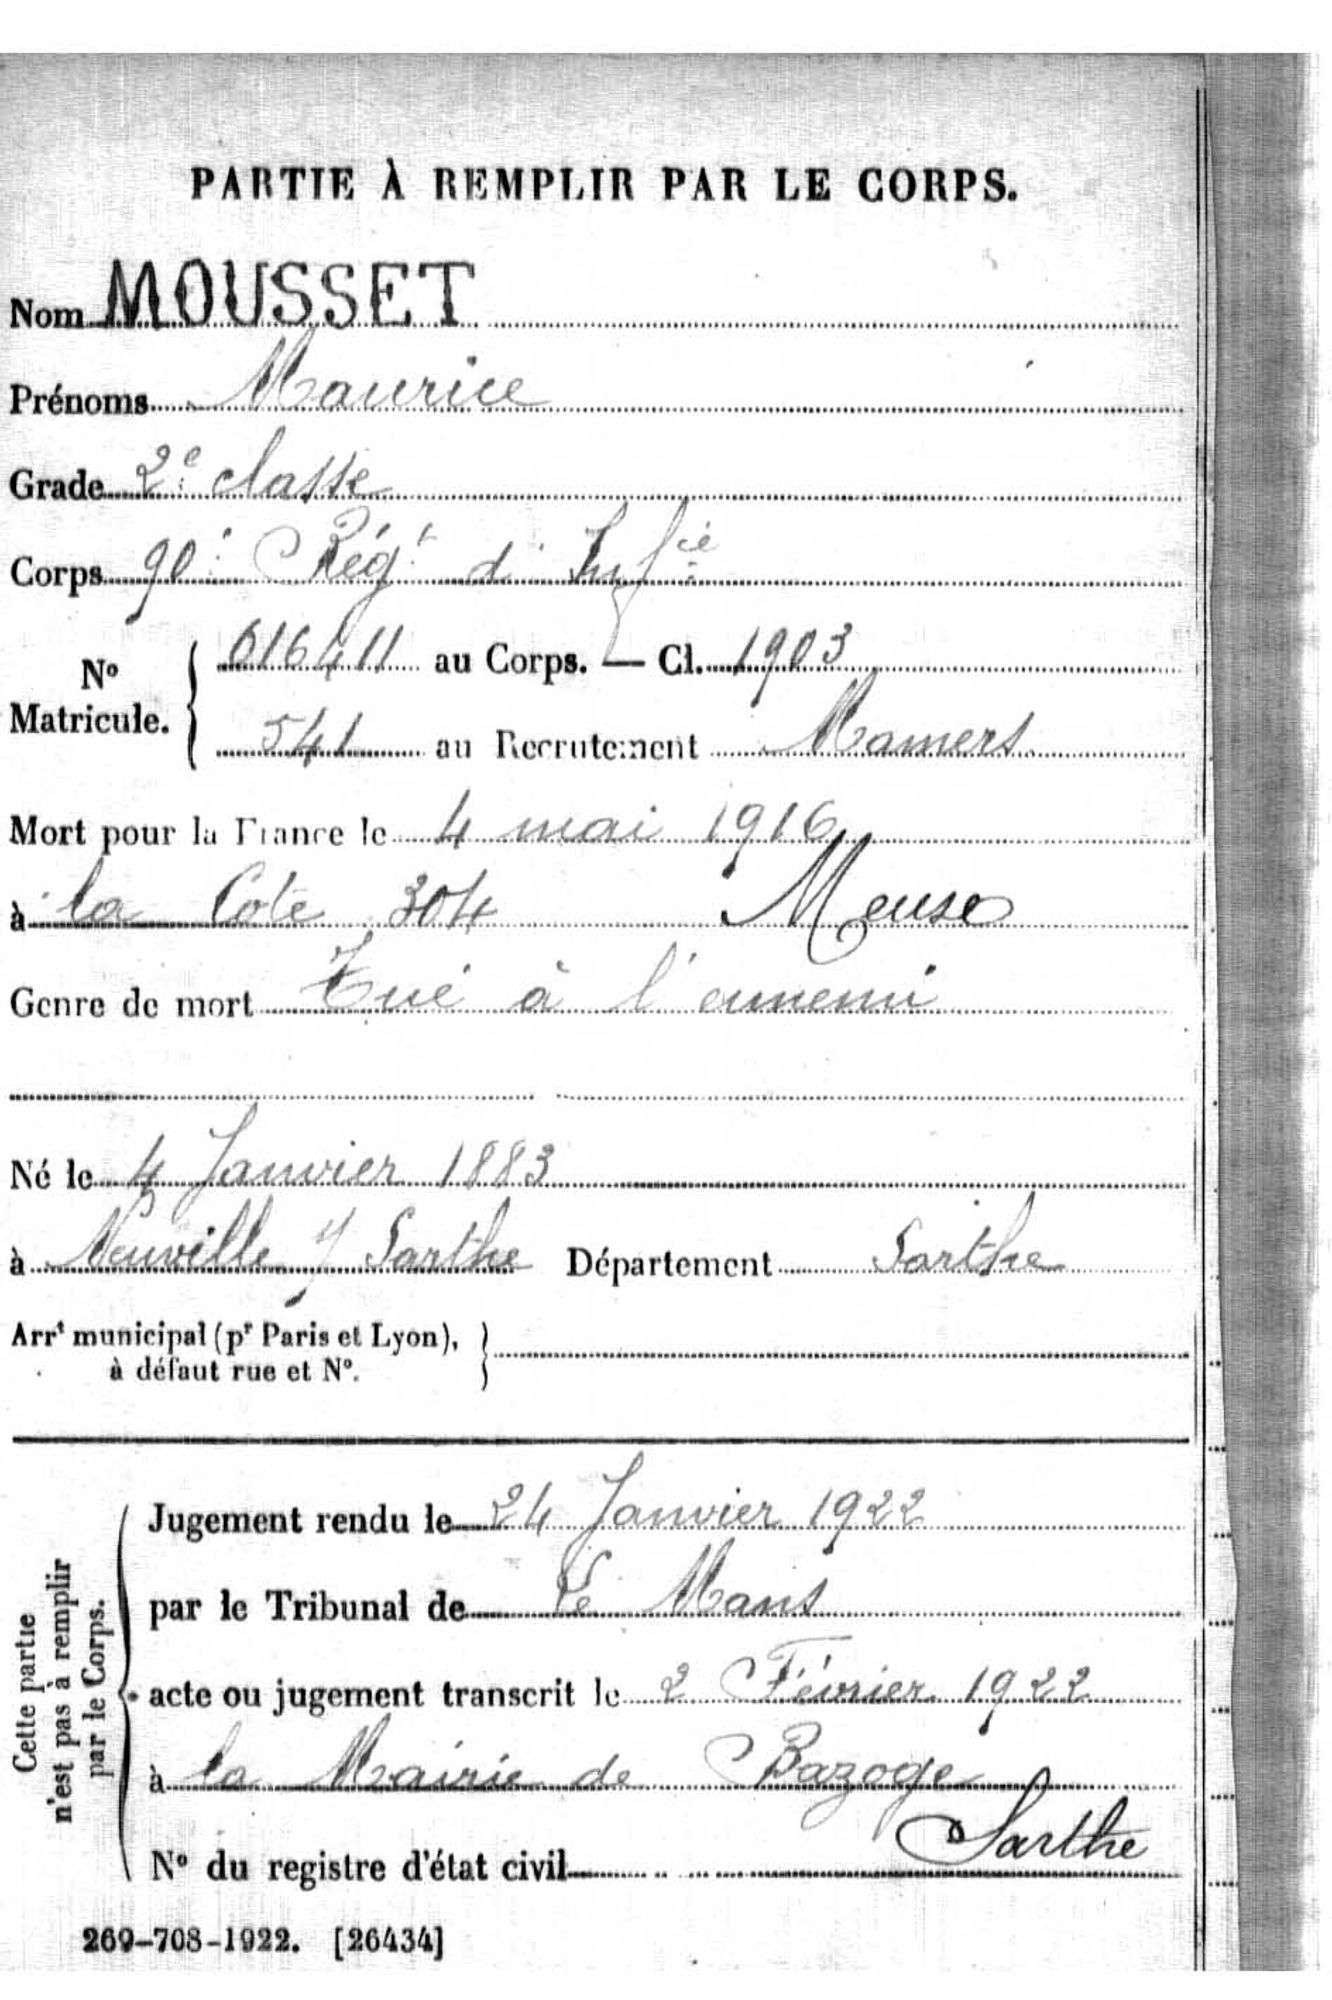 PARTIE À REMPLIR PAR LE CORPS.
Nom MOUSSET
Prénoms Maurice
Grade 2e classe
Corps 90e Régt d'Infie
No Matricule. 616411 au Corps. — Cl. 1903
541 au Recrutement Mamers
Mort pour la France le 4 mai 1916
à la Cote 304 Meuse
Genre de mort Tué à l'ennemi
Né le 4 Janvier 1883
à Neuville s/ Sarthe Département Sarthe
Arrt municipal (pr Paris et Lyon),
à défaut rue et No.
Cette partie
n'est pas à remplir
par le Corps.
Jugement rendu le 24 Janvier 1922
par le Tribunal de Le Mans
acte ou jugement transcrit le 2 Février 1922
à la Mairie de Bazoge
Sarthe
No du registre d'état civil
269-708-1922. [26434]